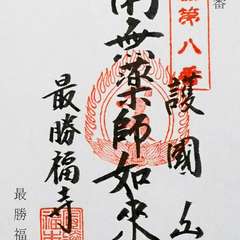 第八番
護國山
南無薬師如来
最勝福寺
最勝福